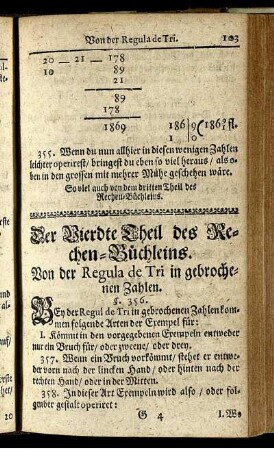 Von der Regula de Tri. 103
20 — 21 — 178
10 89
21
89
178
1869 186|9(186 9/10 fl.
1|0
355. Wenn du nun allhier in diesen wenigen Zahlen
leichter operirest/ bringest du eben so viel heraus/ als o-
ben in den grossen mit mehrer Mühe geschehen wäre.
So viel auch von dem dritten Theil des
Rechen-Büchleins.
Der Vierdte Theil des Re-
chen-Büchleins.
Von der Regula de Tri in gebroche-
nen Zahlen.
§. 356.
BEy der Regul de Tri in gebrochenen Zahlen kom-
men folgende Arten der Exempel für:
I. Kömmt in den vorgegebenen Exempeln entweder
nur ein Bruch für/ oder zweene/ oder drey.
357. Wenn ein Bruch vorkömmt/ stehet er entwe-
der vorn nach der lincken Hand/ oder hinten nach der
rechten Hand/ oder in der Mitten.
358. In dieser Art Exempeln wird also/ oder fol-
gender gestalt operiret:
G 4 I. We